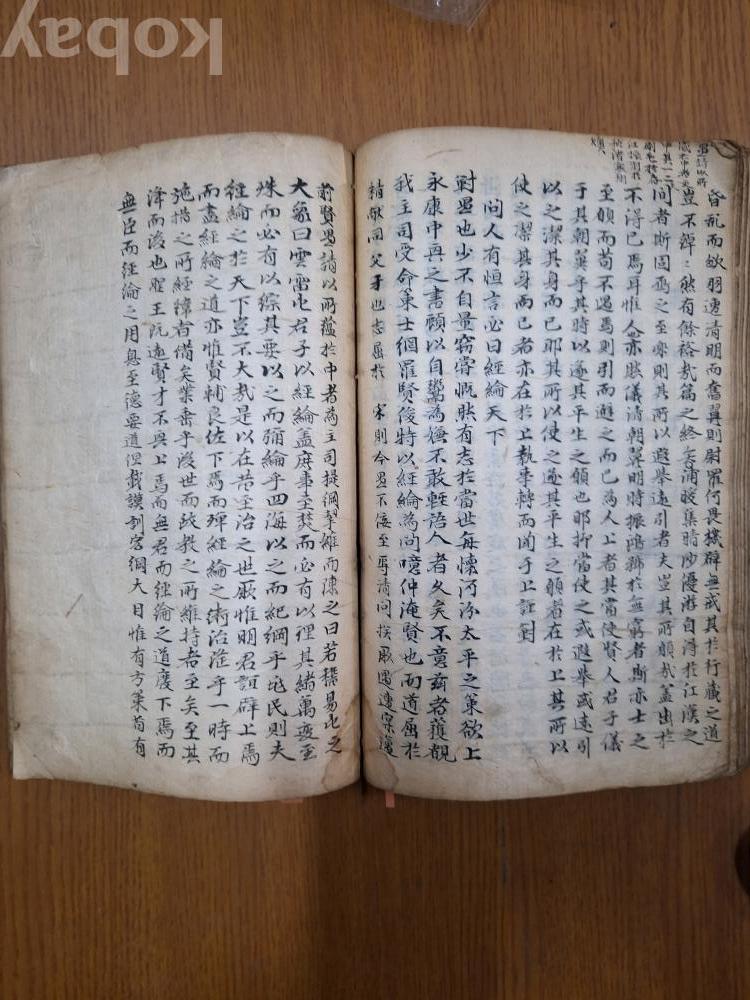 kobay
昏亂而攸羽遭清明而奮翼則尉羅何畏機辟無戒其於行藏之道
豈不綽綽然有餘裕哉篇之終
間者斯固爲之至樂則其所以遐擧遠引者夫豈其所願哉盖出於
不得已焉耳惟人亦然儀清朝翼明時振鴻鵠於無窮者斯亦士之
至願而苟不遇焉則引而避之而已爲人上者其當使賢人君子儀
于其朝翼乎其時以遂其平生之願也耶抑當使之或遐擧或遠引
以之潔其身而已耶其所以使之遂其平生之願者在於上其所以
使之潔其身而已者亦在於上執事轉而聞于上謹對
問人有恒言必曰經綸天下
對愚也少不自量窃嘗慨然有志於當世每懷河汾太平之策欲上
永康中再之書顧以自鬻爲嫌不敢輕語人者久矣不意玆者獲覩
我主司受命東士網羅賢俊特以經綸爲問噫仲淹賢也而道屈於
宋則今愚不佞至辱清問
前賢愚請以所蘊於中者爲主司提綱挈維而陳之曰若稽易屯之
大象曰雲雷屯君子以經綸盖庶事至䌓而必有以理其緖萬变至
殊而必有以綜其要以之而彌綸乎四海以之而紀綱乎庶民則夫
經綸之於天下豈不大哉是以在昔至治之世厥惟明君誼辟上焉
而盡經綸之道亦惟賢輔良佐下焉而殫經綸之術治隆乎一時而
施措之所經緯者備矣業垂乎後世而政教之所維持者至矣至其
澤而後也聖王旣遠賢才不興上焉而無君而經綸之道廢下焉而
無臣而經綸之用息至德要道湮戱謨訓宏綱大目惟有方策苟有